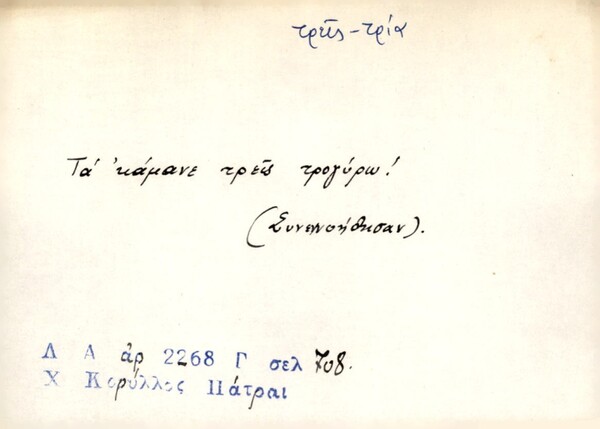 τρεῖς - τρία
Τά 'κάμανε τρεῖς τρογύρω!
(Συνεννοήθησαν).
Λ Α ἀρ 2268 Γ σελ 708.
Χ Κορύλλος Πάτραι